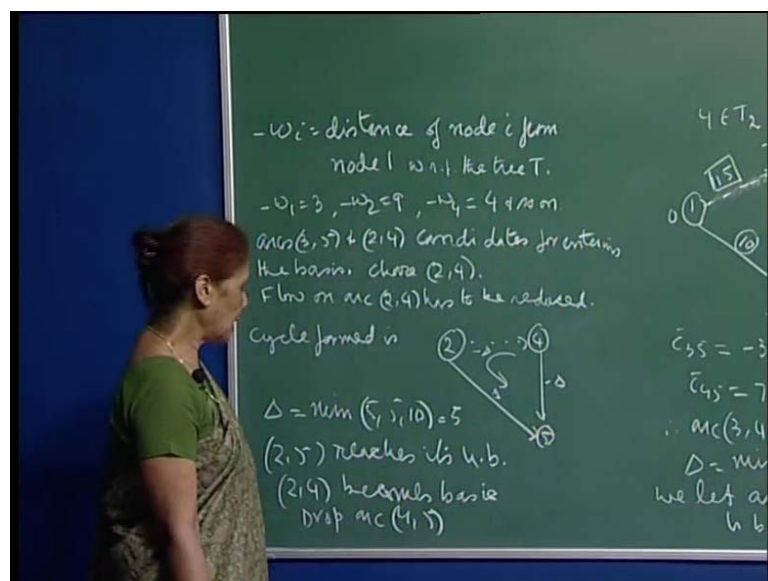 -wi = distance of node i from
node 1 w.r.t. the tree T.
-w1 = 3, -w2 = 9, -w, = 4 & so on.
arcs (3,5) & (2,4) candidates for entering
the basis. choose (2,4).
Flow on arc (2,4) has to be reduced.
cycle formed is
2 -Δ 4
Δ -Δ
5
Δ = min (5, 5, 10) = 5
(2,5) reaches its u.b.
(2,4) becomes basic
Drop arc (4,5)
4 ∈ T2
15
0 1
10
c̄35 = -3
c̄45 = 7
∴ arc (3,4
Δ = min
we let a
u b